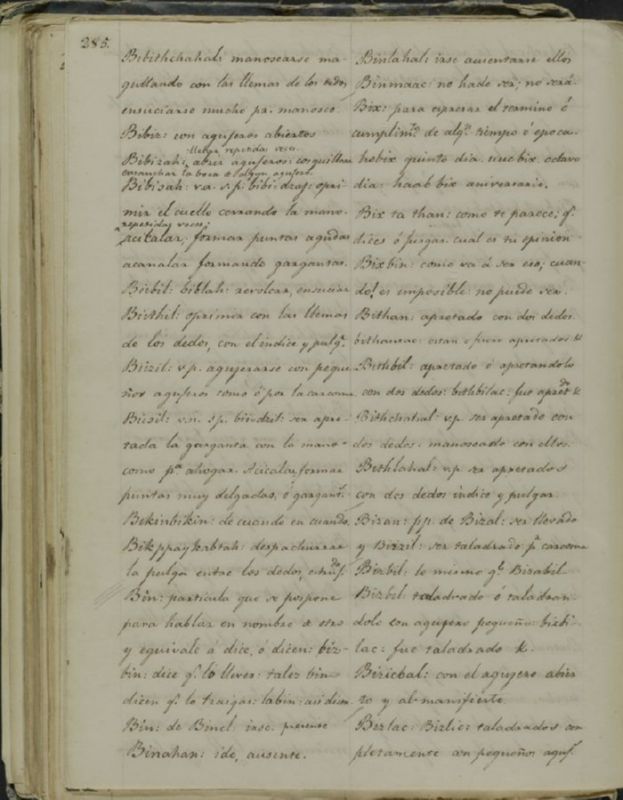 285.
Bibithchahal: manosearse ma-
gullando con las llemas de los dedos
ensuciarse mucho pr. manoseo.
Bibiz: con agujeros abiertos
repetidas veces.
Bibizah: abrir agujeros: cosquillear
ensanchar la boca
Bibisah: va. s.p: bibi:dzaj: opri-
mir el cuello cerrando la mano.
repetidas veces;
acicalar; formar puntas agudas
acanalar formando gargantas.
Biebil: bibtah: revolcar, ensuciar
Biethel: oprimir con las llemas
de los dedos, con el indice y pulgr.
Biizil: v.p. agujerarse con peque-
ños agujeros como ó por la carcoma
Biisil: v.n. s.p: ser apre-
tada la garganta con la mano
como pa. ahogar. Acicalar, formar
puntas muy delgadas, ó gargant.
Bikinbikin: de cuando en cuando.
Bikppaykabtah: despachurrar
la pulga entre los dedos,
Bin: particula que se pospone
para hablar en nombre de otro
y equivale á dice, ó dicen: biz-
bin: dice qe. lo lleves: talez bin
dicen qe. lo traigas: labin: asi dicen
Bin: de Binel: irse:
Binahan: ido, ausente.
Binlahal: irse ausentarse ellos
Binmaac: no ha de ser; no será.
Bix: para espresar el termino ó
cumplimto. de algn. tiempo ó epoca.
hobix quinto dia: uucbix octavo
dia: haab bix aniversario.
Bix ta than: como te parece; qe.
dices ó juzgas. cual es tu opinion
Bixbin: como va á ser eso; cuan-
do! es imposible: no puede ser.
Bithan: apretado con dos dedos.
bithantac: estan ó fueron apretados &
Bithbil: apretado ó apretandolo
con dos dedos: bithbilac: fue apretdo. &
Bithchahal: vp. ser apretado con
dos dedos: manoseado con ellos.
Bithlahal: vp. ser apretados
con dos dedos indice y pulgar.
Bizan: pp. de Bizal: ser llevado
y Biizil: ser taladrado pr. carcoma
Bizbil: lo mismo qe. Bizabil
Bizbil: taladrado ó taladran-
dolo con agujero pequeño: bizbi-
lac: fue taladrado &.
Bizicbal: con el agujero abier-
to y al manifiesto.
Bizlac: Bizlic: taladrados com-
pletamente con pequeños aguj.